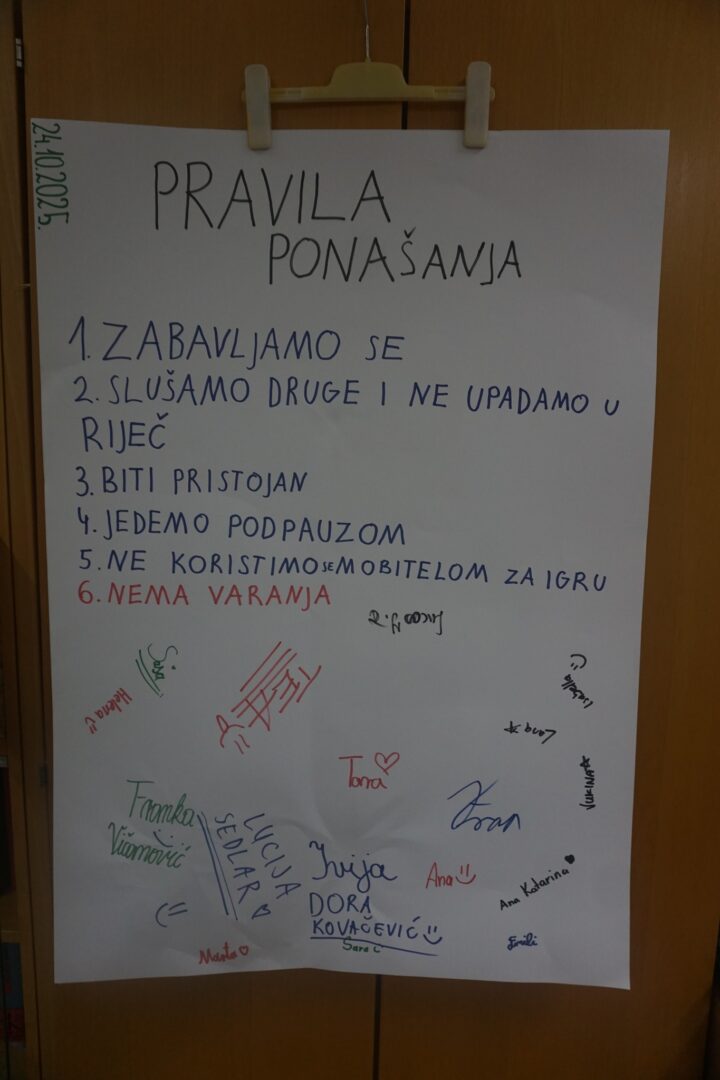 24.10.2025.
PRAVILA
PONAŠANJA
1. ZABAVLJAMO SE
2. SLUŠAMO DRUGE I NE UPADAMO U
RIJEČ
3. BITI PRISTOJAN
4. JEDEMO POD PAUZOM
5. NE KORISTIMO SE MOBITELOM ZA IGRU
6. NEMA VARANJA
Sara
Helena
TEA
Lana
VUKINA
Tonra
Franka
Vičamović
LUCIJA
SEDLAR
Ivija
DORA
KOVAČEVIĆ
Fran
Ana
Ana Katarina
Marta
Sara C
Emili